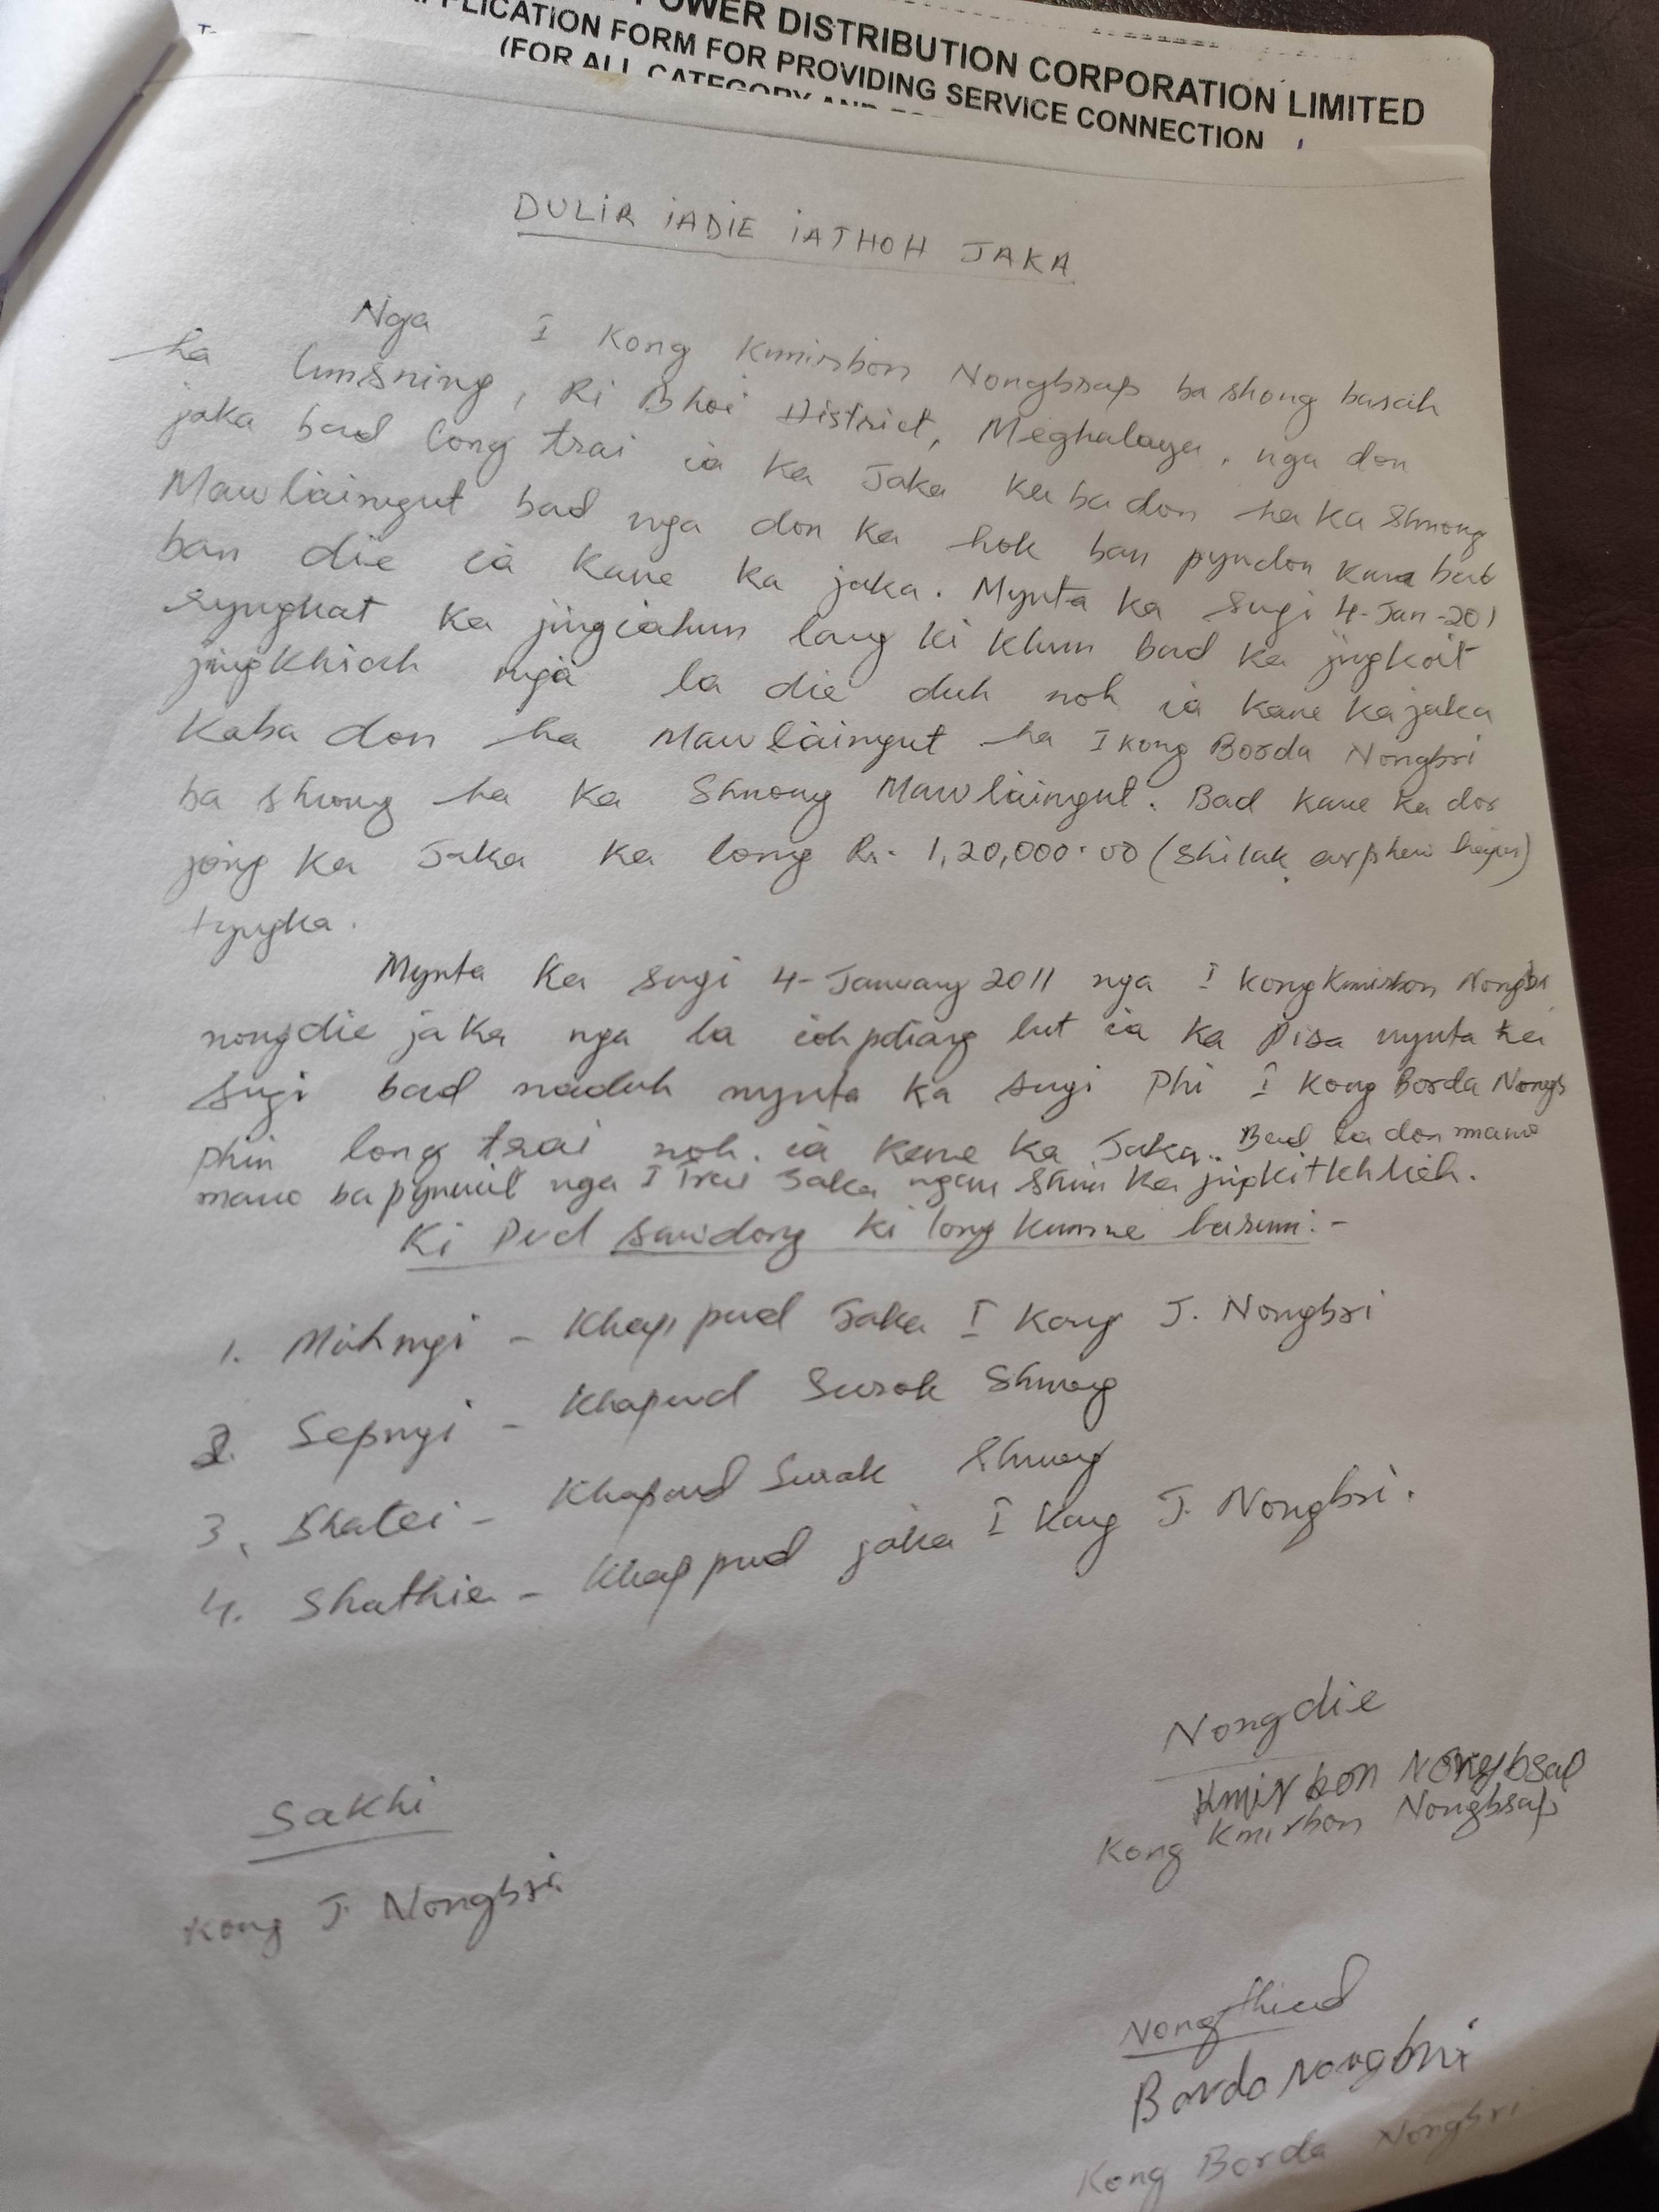 POWER DISTRIBUTION CORPORATION LIMITED
APPLICATION FORM FOR PROVIDING SERVICE CONNECTION
(FOR ALL CATEGORY AND
DULIR IADIE IATHOH JAKA
Nga I Kong Kmirbon Nongbsap ba shong basah
ha Umsning, Ri Bhoi District, Meghalaya, nga don
jaka bad long trai ia ka Jaka ka ba don ha ka Shnong
Mawlaingut bad nga don ka hok ban pyndon kam bad
ban die ia kane ka jaka. Mynta ka sngi 4-Jan-201
syngkat ka jingiahun lang ki khun bad ka jingkoit
jingkhiah nga la die duh noh ia kane ka jaka
kaba don ha Mawlaingut ha I kong Borda Nongbri
ba shong ha ka Shnong Mawlaingut. Bad kane ka dor
jong ka Jaka ka long Rs. 1,20,000.00 (shilak arphew hajar)
tyngka.
Mynta ka sngi 4-January 2011 nga I kong Kmirbon
nongdie jaka nga la ioh pdiang lut ia ka pisa mynta ka
sngi bad naduh mynta ka sngi Phi I Kong Borda Nongb
phin long trai noh ia kane ka Jaka. Bad la don mano
mano ba pynwit nga I Trai Jaka ngan shim ka jingkitkhlieh.
Ki Pud sawdong ki long kumne harum:-
1. Mihngi - Khappud Jaka I Kong J. Nongbri
2. Sepngi - Khapud Surok Shnong
3. Shatei - Khapud Surok Shnong
4. Shathie - Khappud jaka I Kong J. Nongbri.
Nongdie
Kmirbon Nongbsap
Kong Kmirbon Nongbsap
Sakhi
Kong J. Nongbri
Nongthied
Borda Nongbri
Kong Borda Nongbri